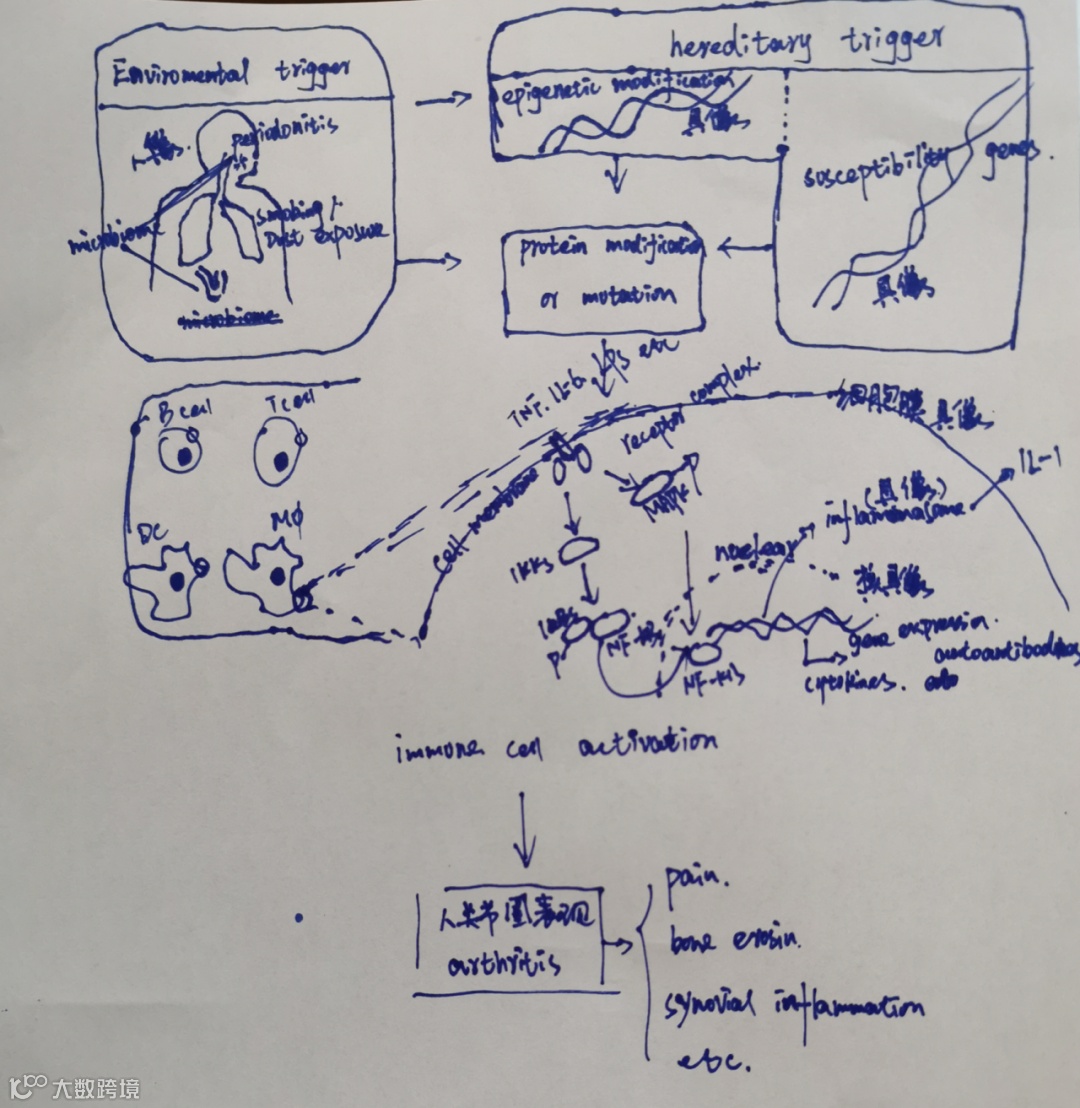 Enviromental trigger
hereditary trigger
epigenetic modification
具像
susceptibility genes.
具像
人像.
periodonitis
microbiome
smoking /
Dust exposure
microbiome
protein modification
or mutation
TNF. IL-6. LPS etc
receptor complex.
细胞膜 具像
B cell
T cell
DC
MΦ
cell membrane
MAPK P
IKKs
IκBs
P
NF-κBs
NF-κB
nuclear
核具像
inflammasome
(具像)
IL-1
gene expression.
autoantibodies
cytokines.
immune cell activation
人类节图表现
arthritis
pain.
bone erosin.
synovial inflammation
etc.
大数跨境